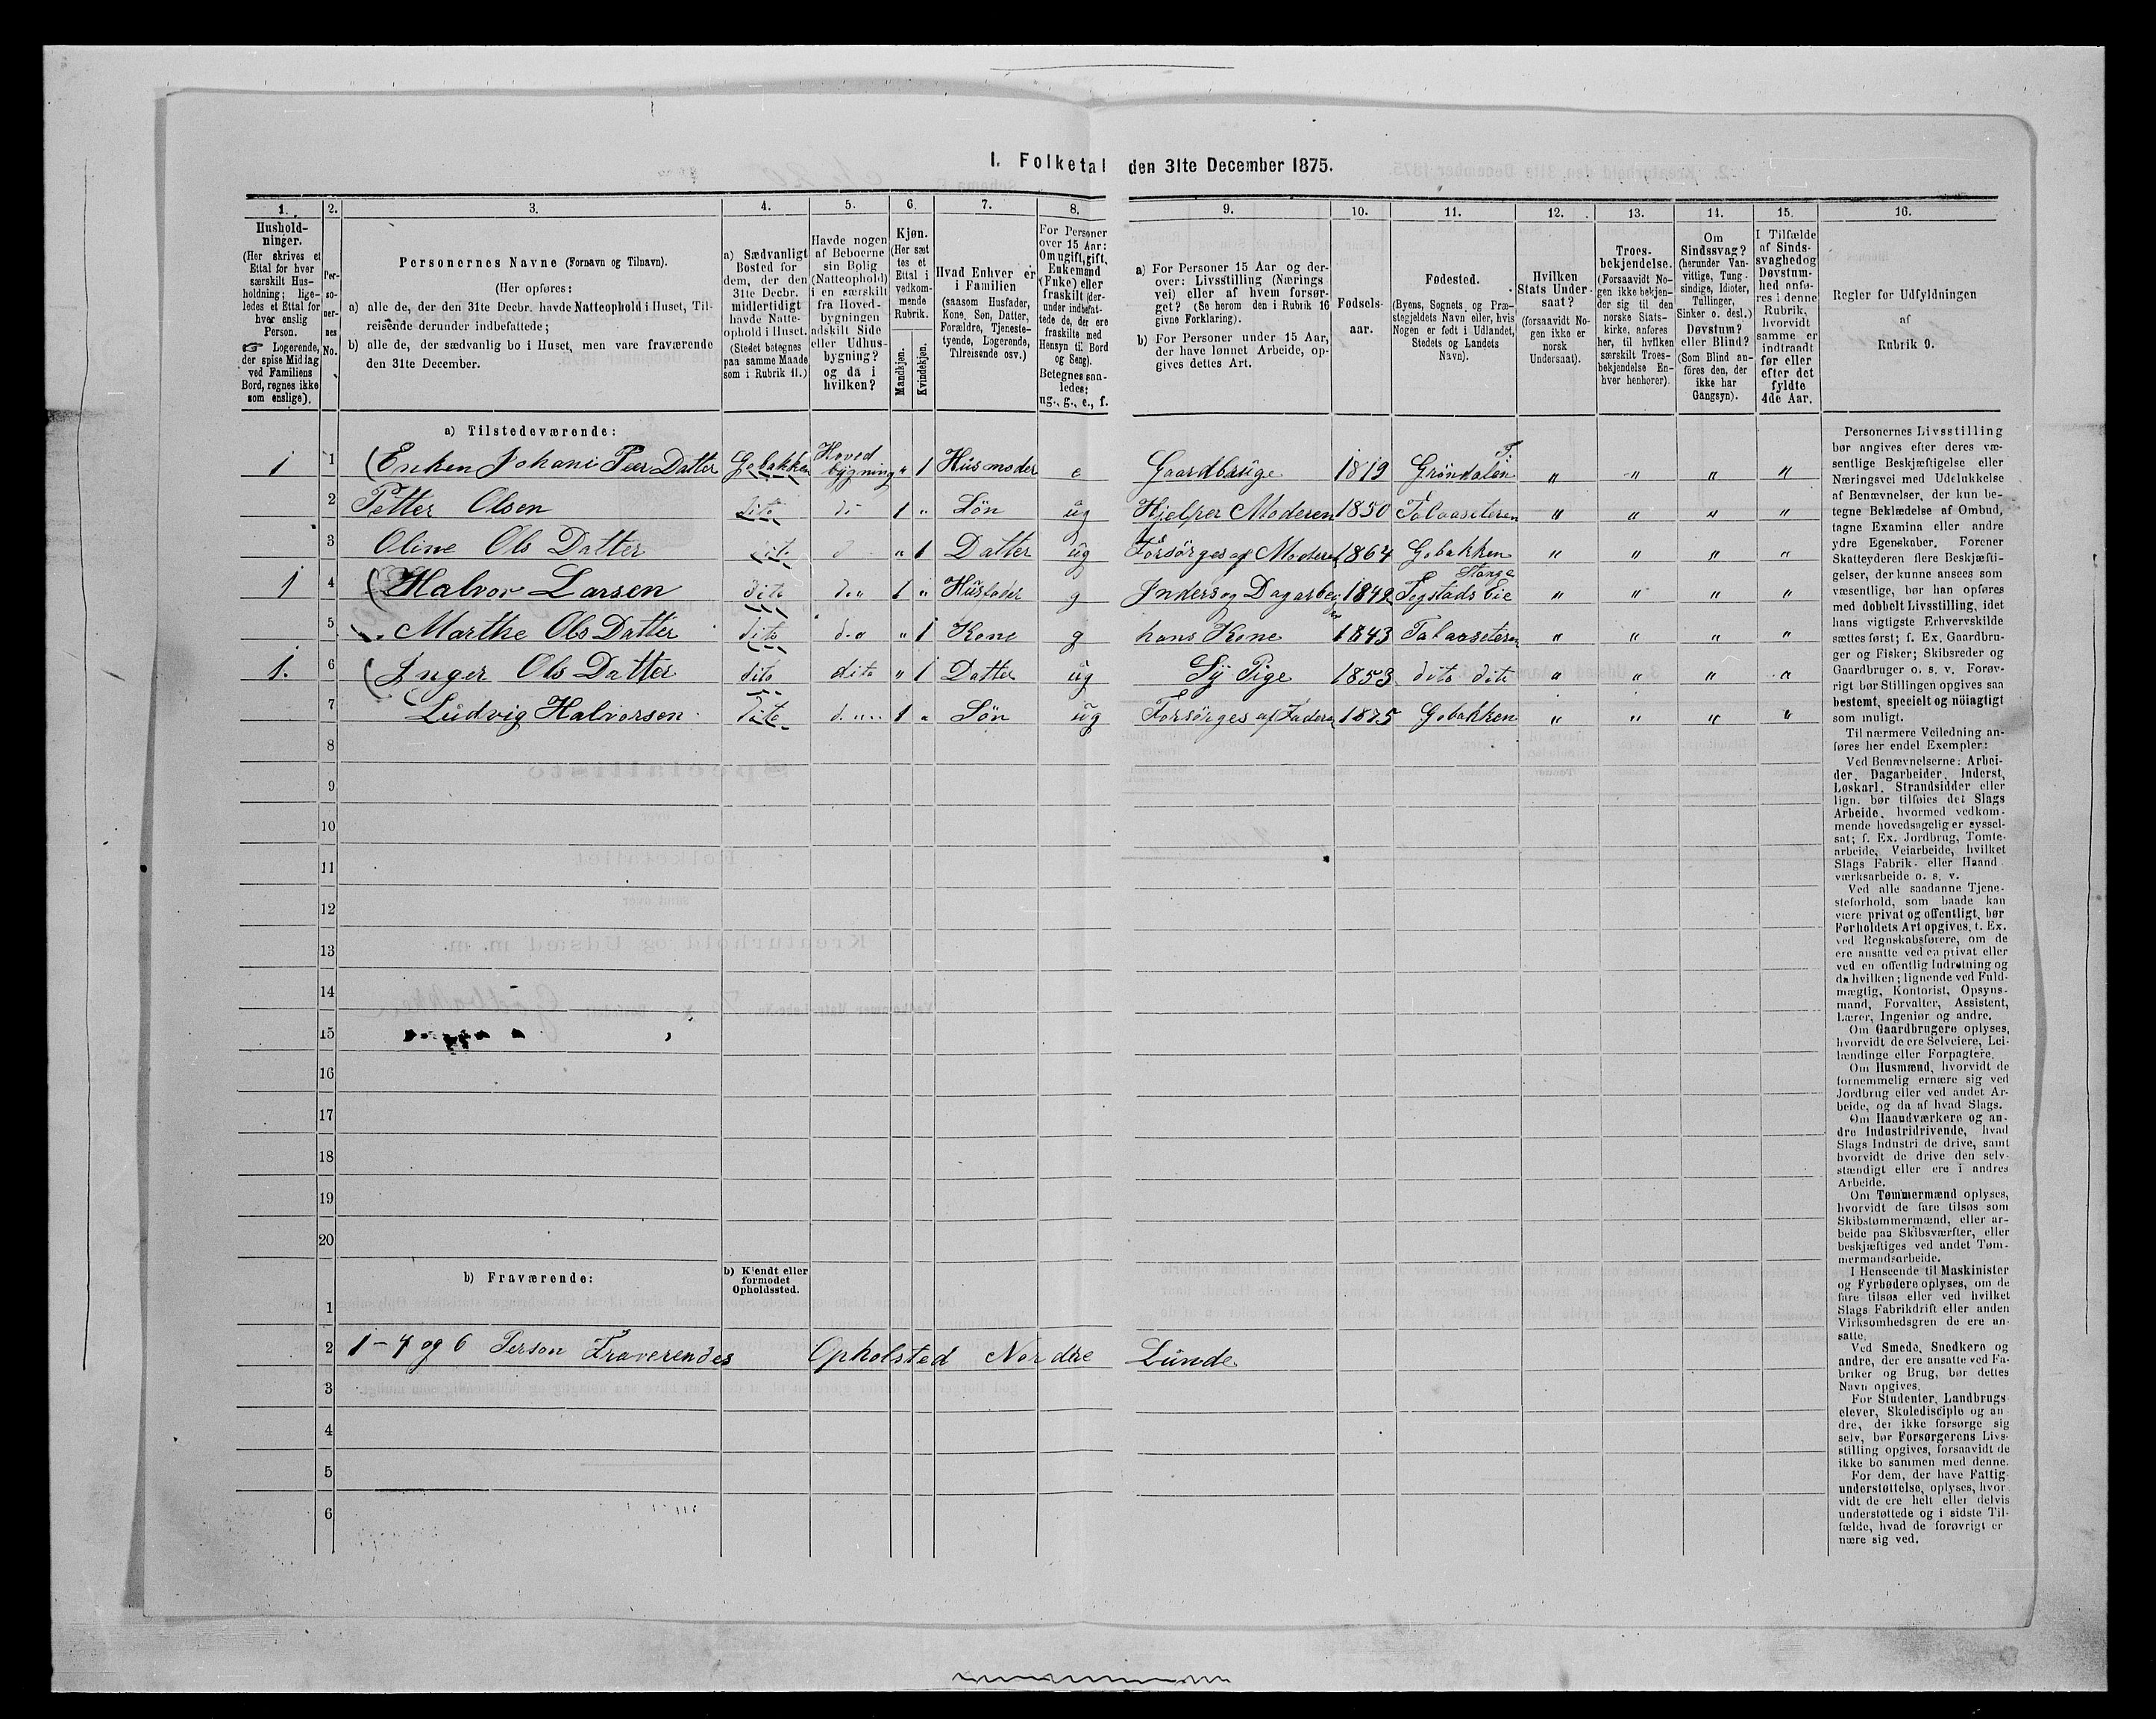 I. Folketal den 31te December 1875.
1. 2. 3. 4. 5. 6. 7. 8. 9. 10. 11. 12. 13. 14. 15. 16.
Hushold-
ninger.
(Her skrives et
Ettal for hver
særskilt Hus-
holdning; lige-
ledes et Ettal for
hver enslig
Person.
☞ Logerende,
der spise Middag
ved Familiens
Bord, regnes ikke
som enslige).
Per-
so-
ner-
nes
No.
Personernes Navne (Fornavn og Tilnavn).
(Her opføres:
a) alle de, der den 31te Decbr. havde Natteophold i Huset, Til-
reisende derunder indbefattede;
b) alle de, der sædvanlig bo i Huset, men vare fraværende
den 31te December.
a) Sædvanligt
Bosted for
dem, der den
31te Decbr.
midlertidigt
havde Natte-
ophold i Huset.
(Stedet betegnes
paa samme Maade
som i Rubrik 11.)
Havde nogen
af Beboerne
sin Bolig
(Natteophold)
i en særskilt
fra Hoved-
bygningen
adskilt Side
eller Udhus-
bygning?
og da i
hvilken?
Kjøn.
(Her sæt
tes et
Ettal i
vedkom-
mende
Rubrik.
Mandkjøn.
Kvindekjøn.
Hvad Enhver er
i Familien
(saasom Husfader,
Kone, Søn, Datter,
Forældre, Tjeneste-
tyende, Logerende,
Tilreisende osv.)
For Personer
over 15 Aar:
Om ugift, gift,
Enkemand
(Enke) eller
fraskilt (der-
under indbefat-
tede de, der ere
fraskilte med
Hensyn til Bord
og Seng).
Betegnes saa-
ledes:
ug., g., e., f.
a) For Personer 15 Aar og der-
over: Livsstilling (Nærings
vei) eller af hvem forsør-
get? (Se herom den i Rubrik 16
givne Forklaring).
b) For Personer under 15 Aar,
der have lønnet Arbeide, op-
gives dettes Art.
Fødsels-
aar.
Fødested.
(Byens, Sognets og Præ-
stegjeldets Navn eller, hvis
Nogen er født i Udlandet,
Stedets og Landets
Navn).
Hvilken
Stats Under-
saat?
(forsaavidt No-
gen ikke er
norsk
Undersaat).
Troes-
bekjendelse.
(Forsaavidt No-
gen ikke bekjen-
der sig til den
norske Stats-
kirke, anføres
her, til hvilken
særskilt Troes-
bekjendelse En-
hver henhører).
Om
Sindssvag?
(herunder Van-
vittige, Tung-
sindige, Idioter,
Tullinger,
Sinker o. desl.)
Døvstum?
eller Blind?
(Som Blind an-
føres den, der
ikke har
Gangsyn).
I Tilfælde
af Sinds-
svaghed og
Døvstum-
hed anfø-
res i denne
Rubrik,
hvorvidt
samme er
indtraadt
før eller
efter det
fyldte
4de Aar.
Regler for Udfyldningen
af
Rubrik 9.
a) Tilstedeværende:
1 1 (Enken Johani Peer Datter Gobakken Hoved bygning " 1 Husmoder e Gaardbruge 1819 Gröndalen T: " " " "
2 Petter Olsen dito d 1 " Sön ug Hjelper Moderen 1850 Talaaseteren " " " "
3 Oline Ols Datter dito d " 1 Datter ug Forsörges af Moderen 1864 Gobakken " " " "
1 4 (Halvor Larsen dito do 1 " Husfader g Inders og Dagarbei 1849 Stange Fogstads Eie " " " "
5 Marthe Ols Datter dito do " 1 Kone g hans Kone 1843 Talaaseteren " " " "
1. 6 (Inger Ols Datter dito dito " 1 Datter ug Sÿ Pige 1853 dito dito " " " "
7 Ludvig Halvorsen dito d 1 " Sön ug Forsörges af Faderen 1875 Gobakken " " " "
8
9
10
11
12
13
14
15
16
17
18
19
20
b) Fraværende:
b) Kjendt eller
formodet
Opholdssted.
1
2 1-4 og 6 Person Fraverendes Opholsted Nordre Lunde
3
4
5
6
Personernes Livsstilling
bør angives efter deres væ-
sentlige Beskjæftigelse eller
Næringsvei med Udelukkelse
af Benævnelser, der kun be-
tegne Beklædelse af Ombud,
tagne Examina eller andre
ydre Egenskaber. Forener
Skatteyderen flere Beskjæfti-
gelser, der kunne ansees som
væsentlige, bør han opføres
med dobbelt Livsstilling, idet
hans vigtigste Erhvervskilde
sættes først; f. Ex. Gaardbru-
ger og Fisker; Skibsreder og
Gaardbruger o. s. v. Forøv-
rigt bør Stillingen opgives saa
bestemt, specielt og nöiagtigt
som muligt.
Til nærmere Veiledning an-
føres her endel Exempler:
Ved Benævnelserne: Arbei-
der, Dagarbeider, Inderst,
Løskarl, Strandsidder eller
lign. bør tilføies det Slags
Arbeide, hvormed vedkom-
mende hovedsagelig er syssel-
sat; f. Ex. Jordbrug, Tomte-
arbeide, Veiarbeide, hvilket
Slags Fabrik- eller Haand
værksarbeide o. s. v.
Ved alle saadanne Tjene-
steforhold, som baade kan
være privat og offentligt, bør
Forholdets Art opgives, f. Ex.
ved Regnskabsførere, om de
ere ansatte ved en privat eller
ved en offentlig Indretning og
da hvilken; lignende ved Fuld-
mægtig, Kontorist, Opsyns-
mand, Forvalter, Assistent,
Lærer, Ingeniør og andre.
Om Gaardbrugere oplyses,
hvorvidt de ere Selveiere, Lei-
lændinge eller Forpagtere.
Om Husmænd, hvorvidt de
fornemmelig ernære sig ved
Jordbrug eller ved andet Ar-
beide, og da af hvad Slags.
Om Haandværkere og an-
dre Industridrivende, hvad
Slags Industri de drive, samt
hvorvidt de drive den selv-
stændigt eller ere i andres
Arbeide.
Om Tømmermænd oplyses,
hvorvidt de fare tilsøs som
Skibstømmermænd, eller ar-
beide paa Skibsværfter, eller
beskjæftiges ved andet Tøm-
mermandsarbeide.
I Henseende til Maskinister
og Fyrbødere oplyses, om de
fare tilsøs eller ved hvilket
Slags Fabrikdrift eller anden
Virksomhedsgren de ere an-
satte.
Ved Smede, Snedkere og
andre, der ere ansatte ved Fa-
briker og Brug, bør dettes
Navn opgives.
For Studenter, Landbrugs
elever, Skoledisciple og an
dre, der ikke forsørge sig
selv, bør Forsørgerens Livs-
stilling opgives, forsaavidt de
ikke bo sammen med denne.
For dem, der have Fattig
understøttelse, oplyses, hvor
vidt de ere helt eller delvis
understøttede og i sidste Til-
fælde, hvad de forøvrigt er
nære sig ved.